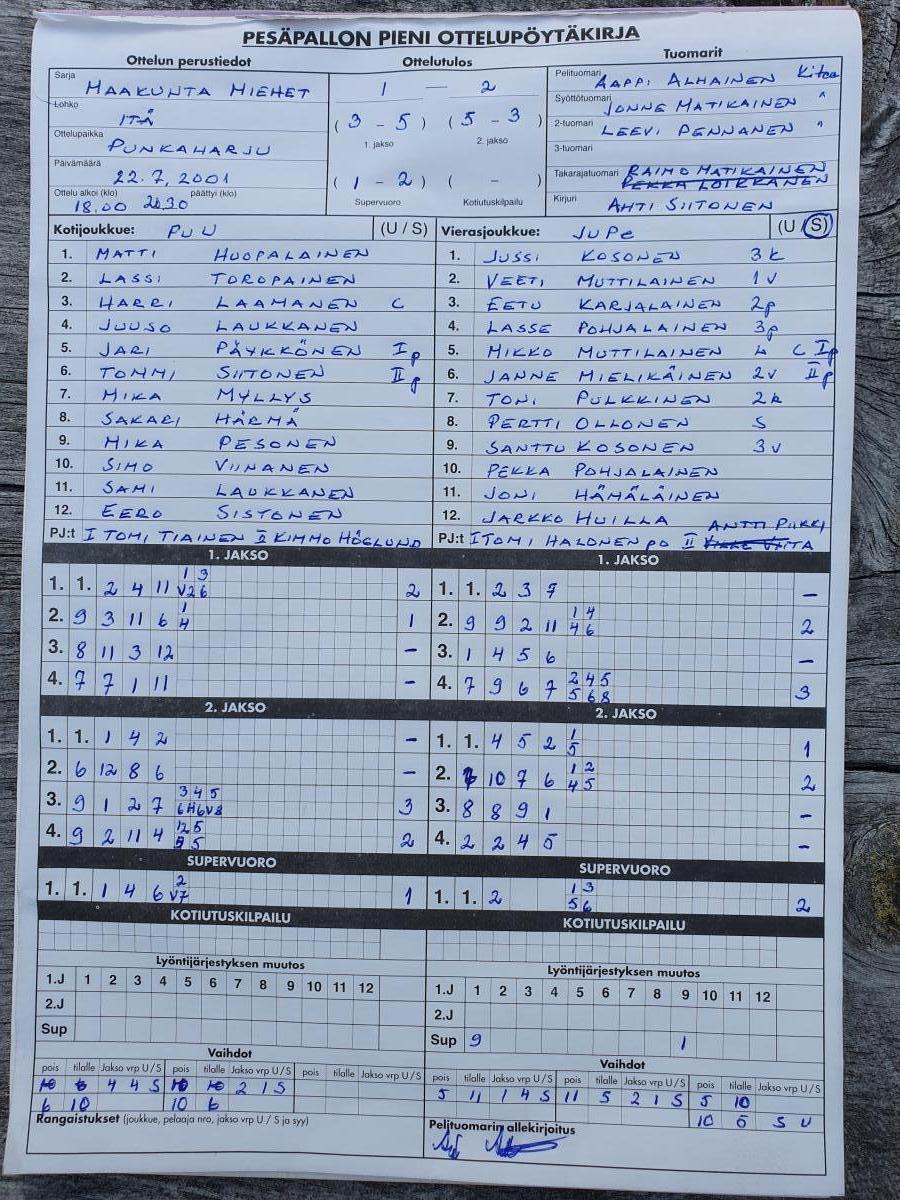 PESÄPALLON PIENI OTTELUPÖYTÄKIRJA
Ottelun perustiedot
Sarja
MAAKUNTA MIEHET
Lohko
ITÄ
Ottelupaikka
PUNKAHARJU
Päivämäärä
22.7.2001
Ottelu alkoi (klo) päättyi (klo)
18.00 20.30
Ottelutulos
1 — 2
(3 - 5) (5 - 3)
1. jakso 2. jakso
(1 - 2) ( - )
Supervuoro Kotiutuskilpailu
Tuomarit
Pelituomari AAPPI ALHAINEN Kitee
Syöttötuomari JONNE MATIKAINEN "
2-tuomari LEEVI PENNANEN "
3-tuomari
Takarajatuomari RAIMO MATIKAINEN
PEKKA LOIKKANEN
Kirjuri AHTI SIITONEN
Kotijoukkue: PUU (U / S)
1. MATTI HUOPALAINEN
2. LASSI TOROPAINEN
3. HARRI LAAMANEN C
4. JUUSO LAUKKANEN
5. JARI PÄYKKÖNEN I p
6. TOMMI SIITONEN II p
7. MIKA MYLLYS
8. SAKARI HÄRMÄ
9. MIKA PESONEN
10. SIMO VIINANEN
11. SAMI LAUKKANEN
12. EERO SISTONEN
PJ:t I TOMI TIAINEN II KIMMO HÖGLUND
Vierasjoukkue: JUPE (U / S)
1. JUSSI KOSONEN 3k
2. VEETI MUTTILAINEN 1v
3. EETU KARJALAINEN 2p
4. LASSE POHJALAINEN 3p
5. MIKKO MUTTILAINEN L C I p
6. JANNE MIELIKÄINEN 2v II p
7. TONI PULKKINEN 2k
8. PERTTI OLLONEN S
9. SANTTU KOSONEN 3v
10. PEKKA POHJALAINEN
11. JONI HÄMÄLÄINEN
12. JARKKO HUILLA
ANTTI PIRKKI
PJ:t I TOMI HALONEN PO II
1. JAKSO
1. 1. 2 4 11 1 3 2
V2 6
2. 9 3 11 6 1 1
4
3. 8 11 3 12 -
4. 7 7 1 11 -
2. JAKSO
1. 1. 1 4 2 -
2. 6 12 8 6 -
3. 9 1 2 7 3 4 5 3
6H6V8
4. 9 2 11 4 12 5 2
5 5
SUPERVUORO
1. 1. 1 4 6 2 1
V7
KOTIUTUSKILPAILU
1. JAKSO
1. 1. 2 3 7 -
2. 9 9 2 11 1 4 2
4 6
3. 1 4 5 6 -
4. 7 9 6 7 2 4 5 3
5 6 8
2. JAKSO
1. 1. 4 5 2 1 1
5
2. 10 7 6 1 2 2
4 5
3. 8 8 9 1 -
4. 2 2 4 5 -
SUPERVUORO
1. 1. 2 1 3 2
5 6
KOTIUTUSKILPAILU
Lyöntijärjestyksen muutos
1.J 1 2 3 4 5 6 7 8 9 10 11 12
2.J
Sup
Vaihdot
pois tilalle Jakso vrp U/S pois tilalle Jakso vrp U/S pois tilalle Jakso vrp U/S
10 6 4 4 S 10 10 2 1 S
6 10 10 6
Rangaistukset (joukkue, pelaaja nro, jakso vrp U / S ja syy)
Lyöntijärjestyksen muutos
1.J 1 2 3 4 5 6 7 8 9 10 11 12
2.J
Sup 9 1
Vaihdot
pois tilalle Jakso vrp U/S pois tilalle Jakso vrp U/S pois tilalle Jakso vrp U/S
5 11 1 4 S 11 5 2 1 S 5 10
10 5 S U
Pelituomarin allekirjoitus